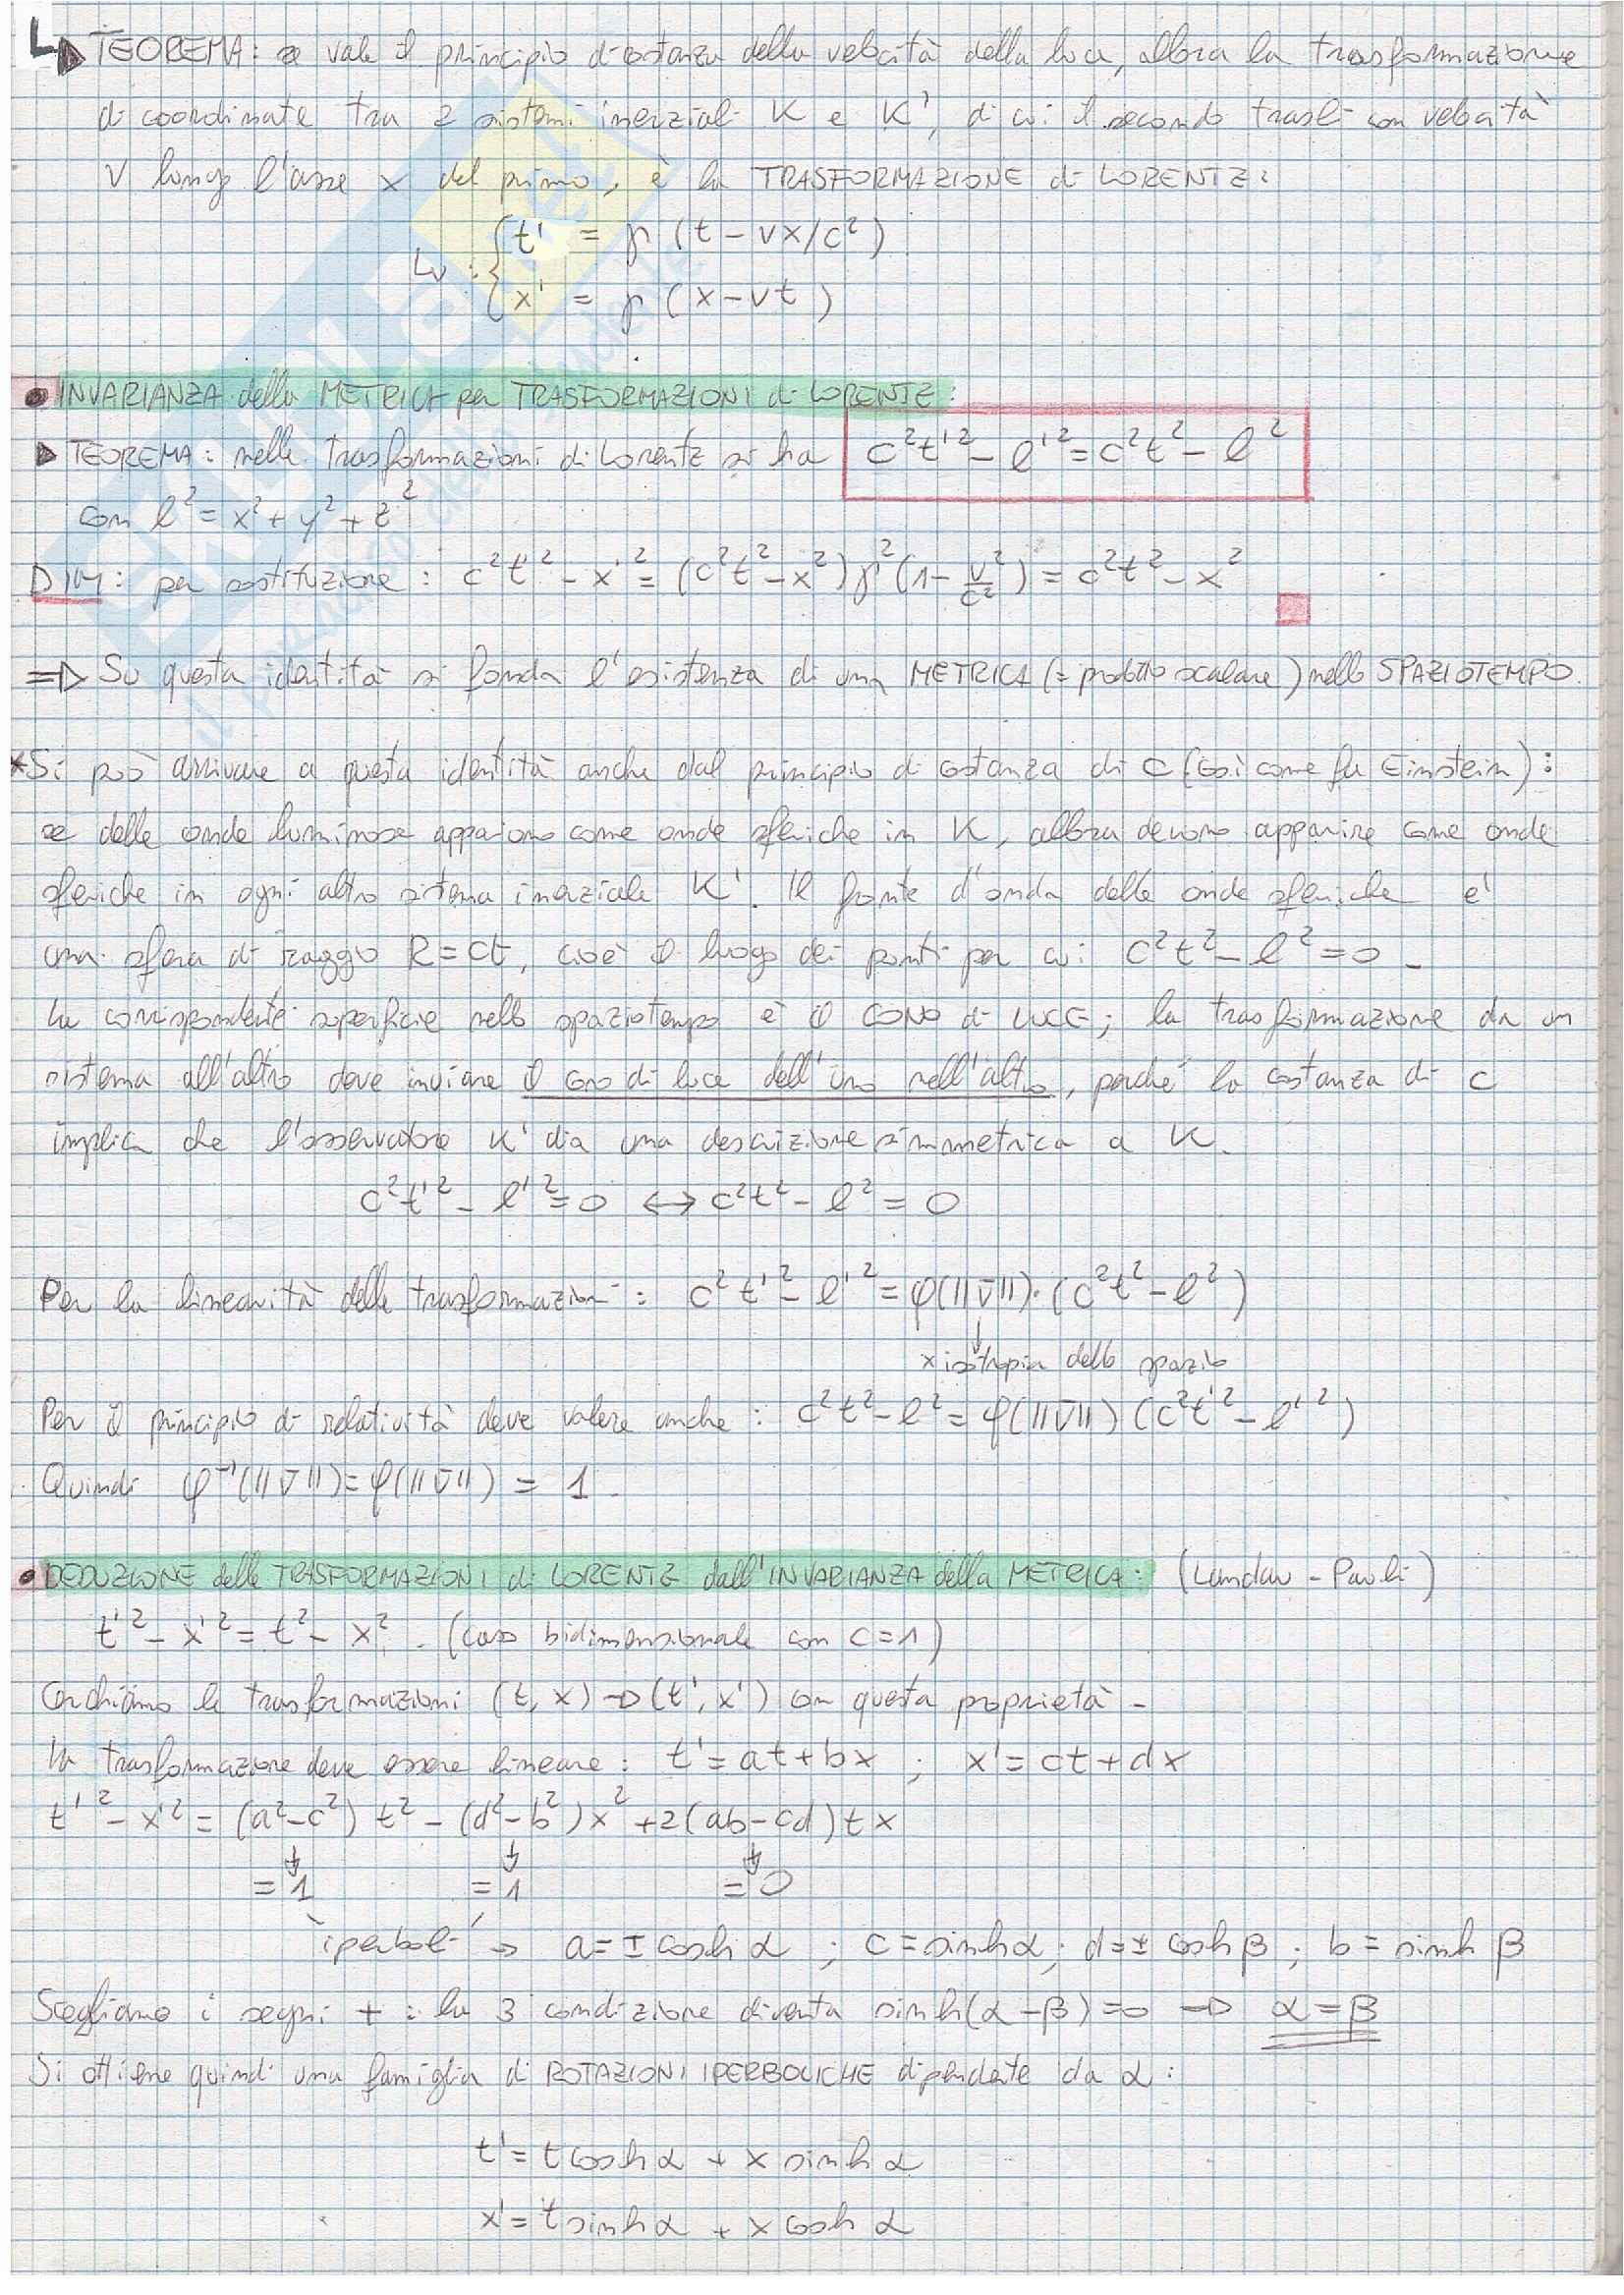 L▶ TEOREMA: se vale il principio di costanza della velocità della luce, allora la trasformazione
di coordinate tra 2 sistemi inerziali K e K', di cui il secondo trasli con velocità
V lungo l'asse x del primo, è la TRASFORMAZIONE di LORENTZ:
Lv : { t' = γ (t - vx/c²)
x' = γ (x - vt)
• INVARIANZA della METRICA per TRASFORMAZIONI di LORENTZ:
▶ TEOREMA: nelle trasformazioni di Lorentz si ha c²t'² - l'² = c²t² - l²
con l² = x² + y² + z²
DIM: per sostituzione: c²t'² - x'² = (c²t² - x²) γ² (1 - v²/c²) = c²t² - x²
⇒ Su questa identità si fonda l'esistenza di una METRICA (= prodotto scalare) nello SPAZIOTEMPO.
*Si può arrivare a questa identità anche dal principio di costanza di c (così come fu Einstein):
se delle onde luminose appaiono come onde sferiche in K, allora devono apparire come onde
sferiche in ogni altro sistema inerziale K'. Il fronte d'onda delle onde sferiche e'
una sfera di raggio R = ct, cioè il luogo dei punti per cui c²t² - l² = 0 -
La corrispondente superficie nello spaziotempo è il CONO di LUCE; la trasformazione da un
sistema all'altro deve inviare il cono di luce dell'uno nell'altro, perché la costanza di c
implica che l'osservatore K' dia una descrizione simmetrica a K.
c²t'² - l'² = 0 ↔ c²t² - l² = 0
Per la linearità delle trasformazioni: c²t'² - l'² = φ(||v̄||)·(c²t² - l²)
↓
x isotropia dello spazio
Per il principio di relatività deve valere anche: c²t² - l² = φ(||v̄||) (c²t'² - l'²)
Quindi φ⁻¹(||v̄||) = φ(||v̄||) = 1.
• DEDUZIONE delle TRASFORMAZIONI di LORENTZ dall'INVARIANZA della METRICA: (Landau - Pauli)
t'² - x'² = t² - x². (caso bidimensionale con c = 1)
Cerchiamo le trasformazioni (t, x) → (t', x') con questa proprietà -
La trasformazione deve essere lineare: t' = at + bx ; x' = ct + dx
t'² - x'² = (a² - c²) t² - (d² - b²) x² + 2(ab - cd) tx
↓ ↓ ↓
= 1 = 1 = 0
iperboli → a = ± cosh α ; c = sinh α ; d = ± cosh β ; b = sinh β
Scegliamo i segni + : la 3 condizione diventa sinh(α - β) = 0 → α = β
Si ottiene quindi una famiglia di ROTAZIONI IPERBOLICHE dipendente da α:
t' = t cosh α + x sinh α
x' = t sinh α + x cosh α